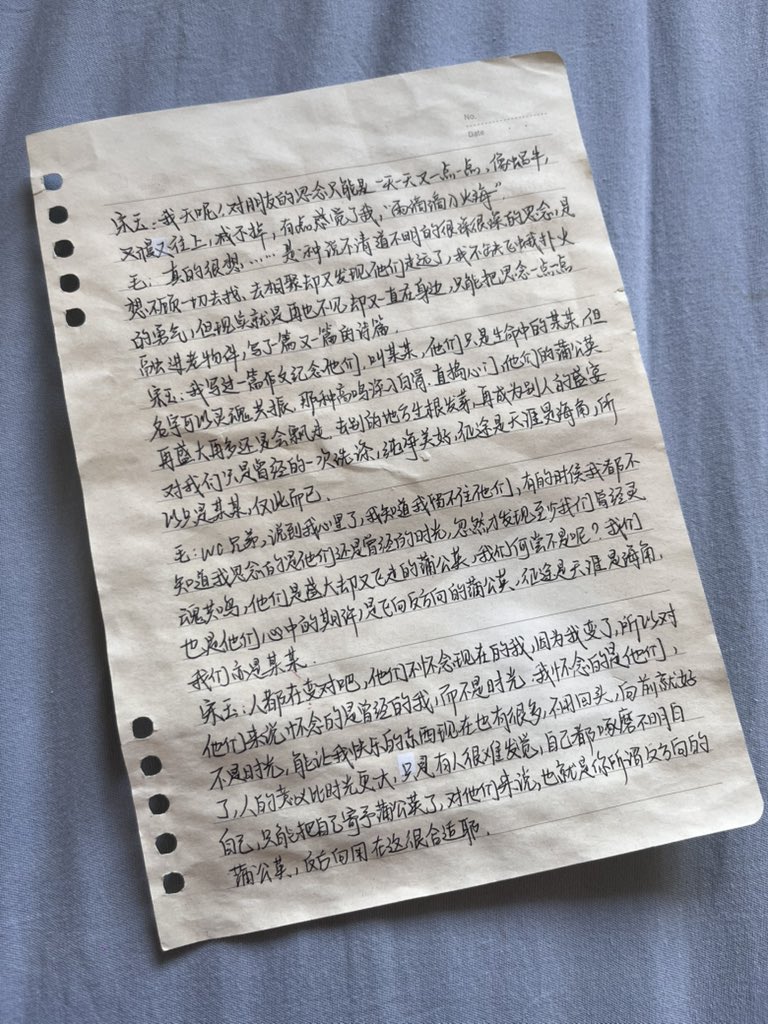 No.
Date
宋玉：我天呢！对朋友的思念只能是一天一天又一点一点，像蜗牛，
又慢又往上，戒不掉，有点感觉了我，“雨滴滴入火海”
毛：真的很想，……是一种说不清道不明的很深很深的思念，是
想不顾一切去找、去相聚却又发现他们走远了，我不缺飞蛾扑火
的勇气，但现实就是再也不见却又一直在身边，只能把思念一点一点
融进老物件，写了一篇又一篇的诗篇.
宋玉：我写过一篇作文纪念他们，叫某某，他们只是生命中的某某，但
名字可以灵魂共振，那种高鸣深入白骨，直捣心门，他们的蒲公英
再盛大再多还是会飘走，去别的地方生根发芽，再成为别人的盛宴
对我们只是曾经的一次洗涤，纯净美好，征途是天涯是海角，所
以只是某某，仅此而已.
毛：WC兄弟，说到我心里了，我知道我留不住他们，有的时候我都不
知道我思念的是他们还是曾经的时光，忽然才发现至少我们曾经灵
魂共鸣，他们是盛大却又飞走的蒲公英，我们何尝不是呢？我们
也是他们心中的期许，是飞向反方向的蒲公英，征途是天涯是海角，
我们亦是某某.
宋玉：人都在变对吧，他们不怀念现在的我，因为我变了，所以对
他们来说怀念的是曾经的我，而不是时光，我怀念的是他们，
不是时光，能让我快乐的东西现在也有很多，不用回头，向前就好
了，人的意义比时光更大，只是有人很难发觉，自己都琢磨不明白
自己，只能把自己寄予蒲公英了，对他们来说，也就是你所谓反方向的
蒲公英，反方向用在这很合适耶.